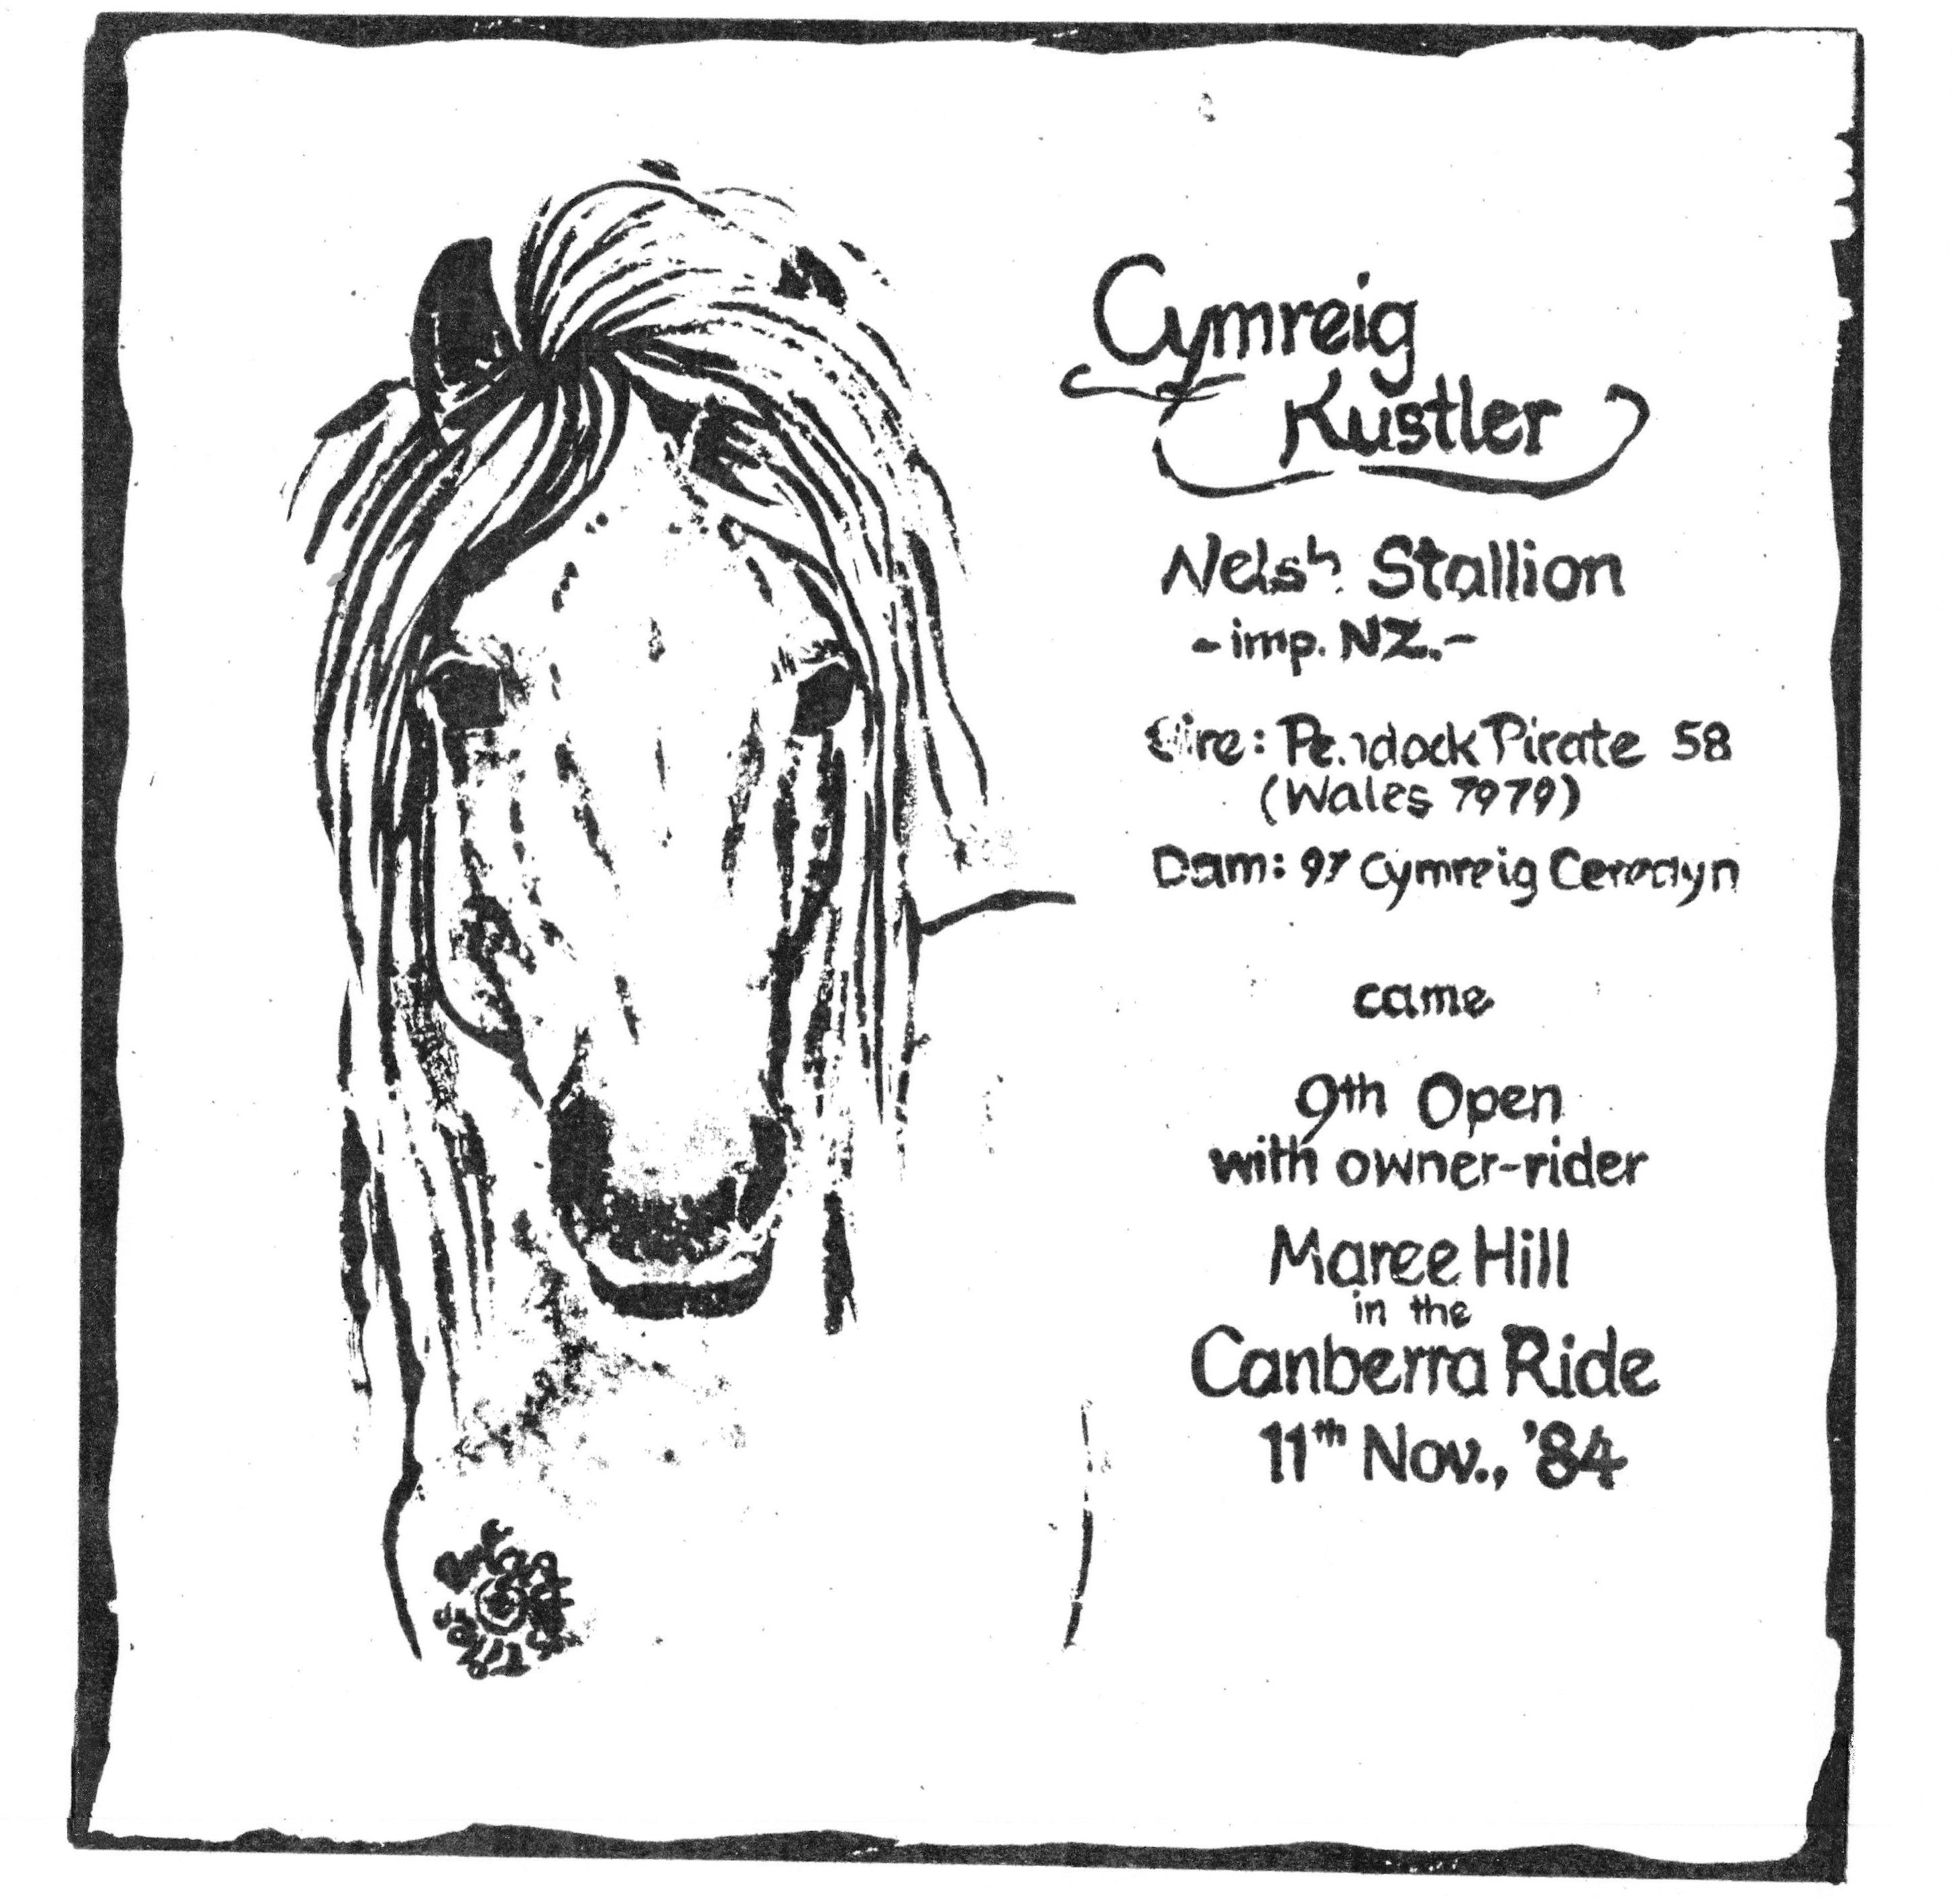 Cymreig
Kustler
Welsh Stallion
- imp. NZ. -
Sire: Pendock Pirate 58
(Wales 7979)
Dam: 97 Cymreig Ceredyn
came
9th Open
with owner-rider
Maree Hill
in the
Canberra Ride
11th Nov., '84